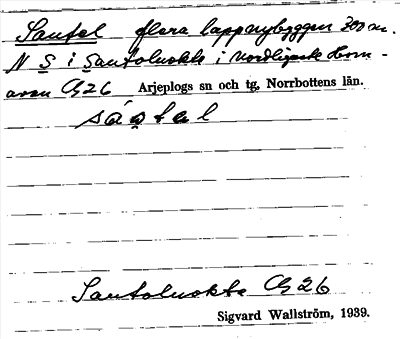 Sautel flera lappnybyggen 300 m.
N S i Sautoluokte i nordligaste Horn-
avan G26 Arjeplogs sn och tg, Norrbottens län.
sáutel
Sautoluokte G26
Sigvard Wallström, 1939.